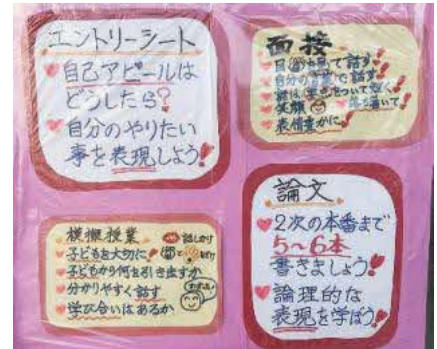 エントリーシート
自己アピールは
どうしたら?
自分のやりたい
事を表現しよう!
面接
目を見て話す!
自分の言葉で話す!
話は要点をついて短く!
笑顔 落ち着いて!
表情豊かに!
模擬授業 話しかけ
子どもを大切に!
子どもから何を引き出すか
分かりやすく話す
学び合いはあるか
論文
2次の本番まで
5〜6本
書きましょう!
論理的な
表現を学ぼう!